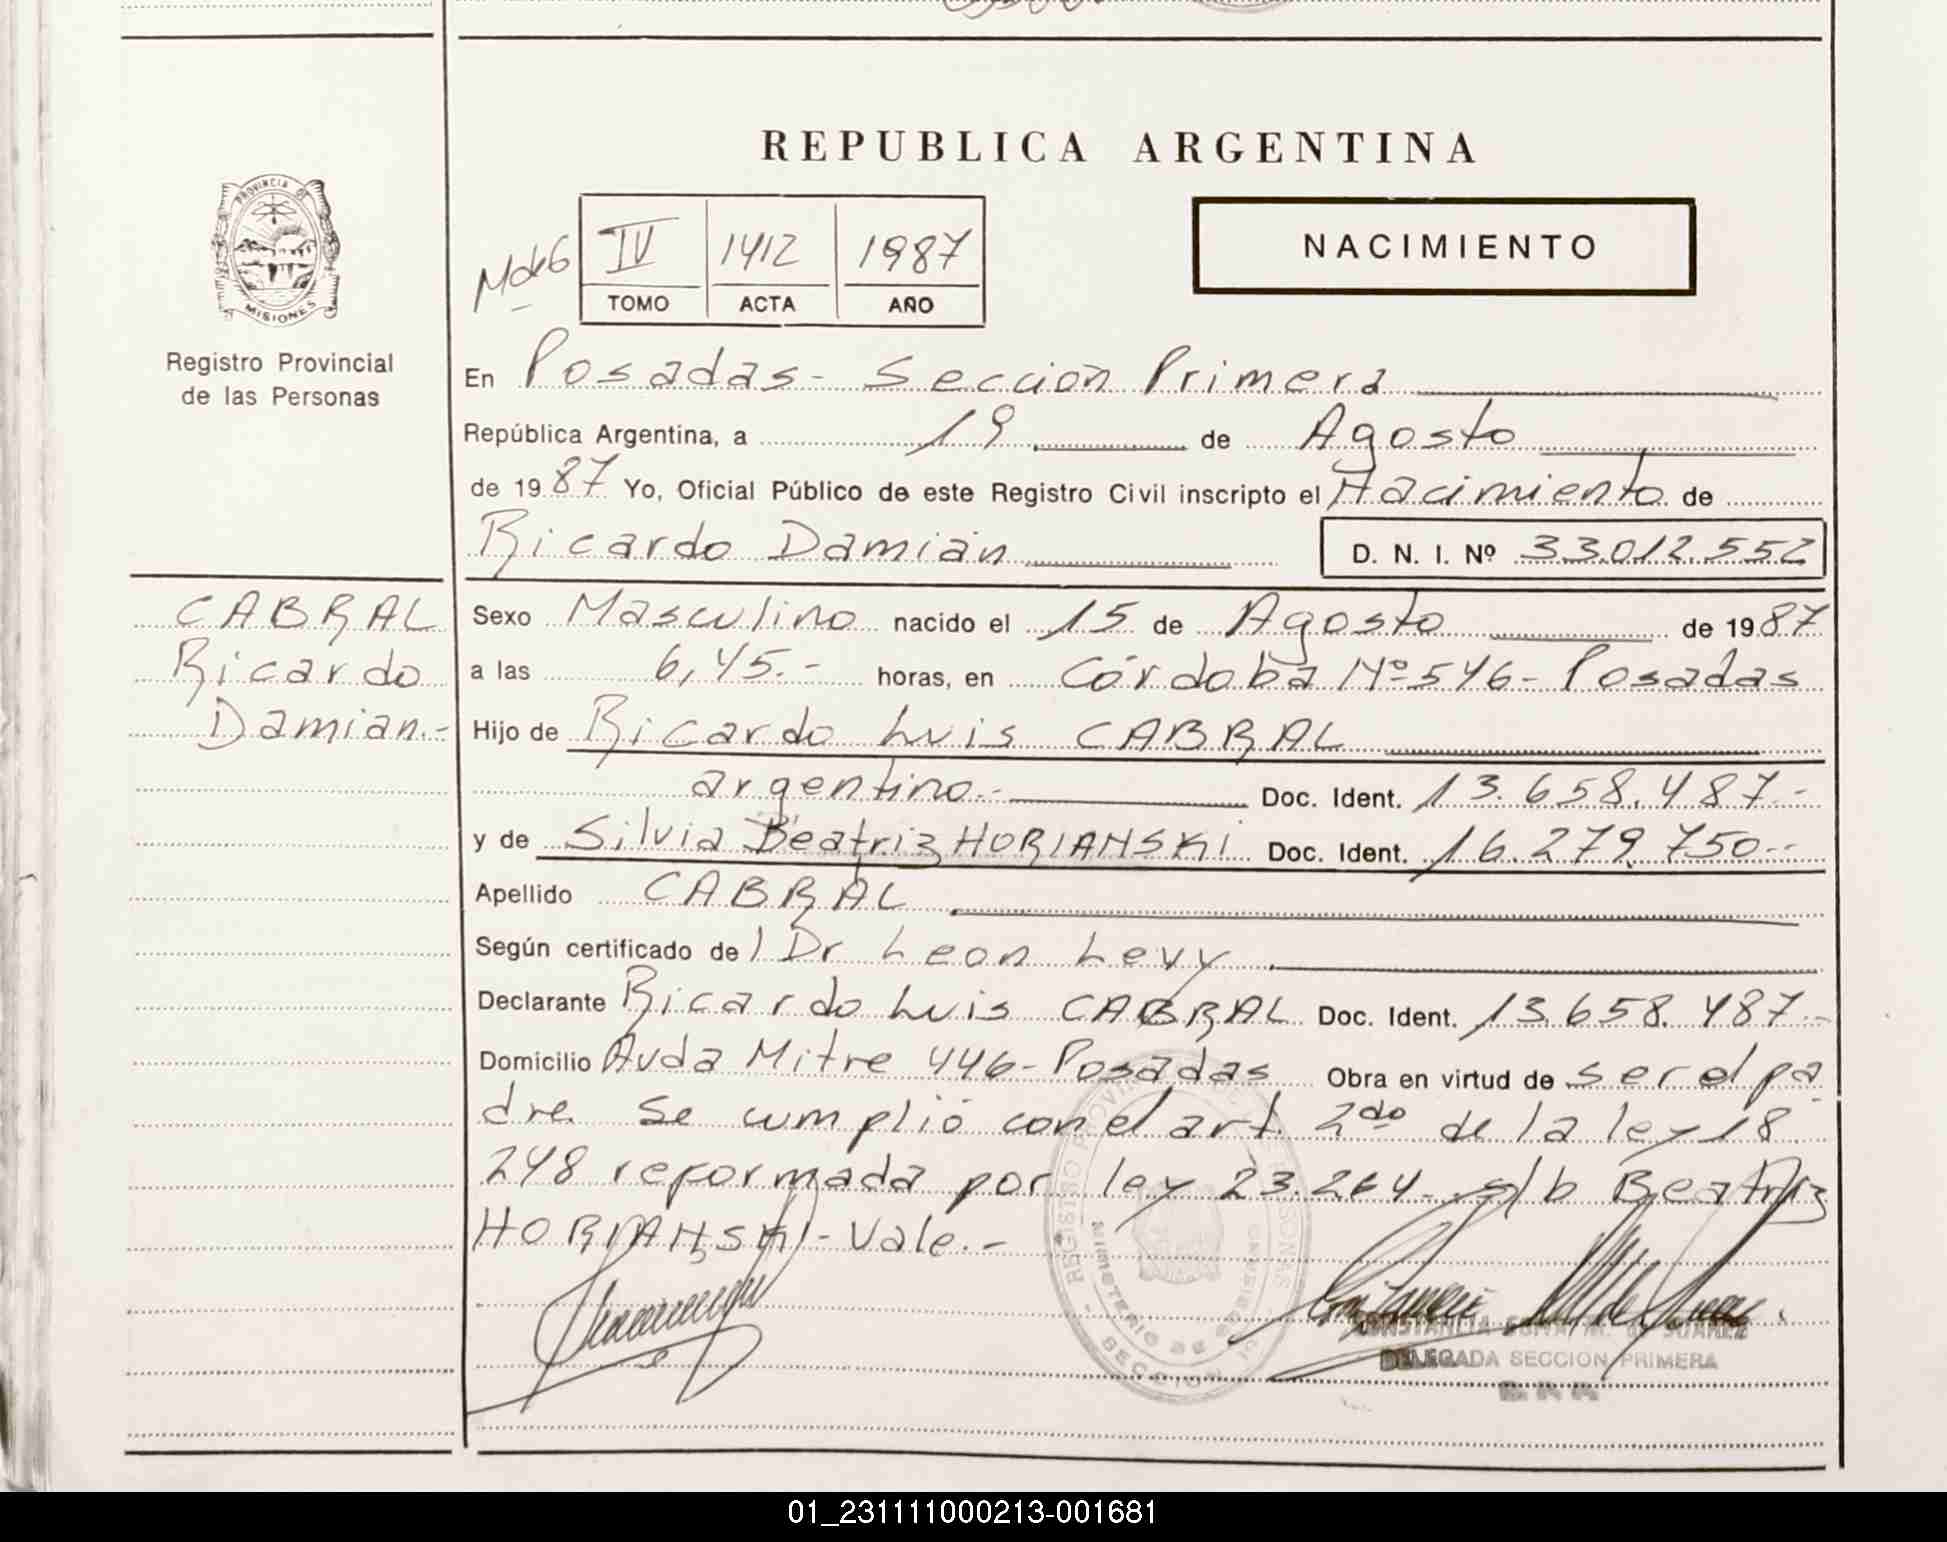 REPUBLICA ARGENTINA
PROVINCIA DE
MISIONES
Registro Provincial
de las Personas
IV 1412 1987
TOMO ACTA AÑO
NACIMIENTO
En Posadas - Sección Primera
República Argentina, a 19 de Agosto
de 1987 Yo, Oficial Público de este Registro Civil inscripto el Nacimiento de
Ricardo Damián
D. N. I. Nº 33.012.552
CABRAL
Ricardo
Damian.-
Sexo Masculino nacido el 15 de Agosto de 1987
a las 6,45.- horas, en Córdoba Nº 546 - Posadas
Hijo de Ricardo Luis CABRAL
argentino.- Doc. Ident. 13.658.487.-
y de Silvia Beatriz HORIANSKI Doc. Ident. 16.279.750.-
Apellido CABRAL
Según certificado de l Dr Leon Levy
Declarante Ricardo Luis CABRAL Doc. Ident. 13.658.487.-
Domicilio Avda Mitre 446 - Posadas Obra en virtud de ser el pa
dre. Se cumplió con el art. 2do de la ley 18
248 reformada por ley 23.264. s/b Beatriz
HORIANSKI - Vale.-
DELEGADA SECCION PRIMERA
01_231111000213-001681